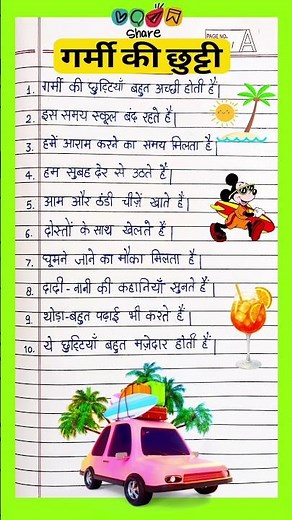 Share
PAGE NO.
A
गर्मी की छुट्टी
1. गर्मी की छुट्टियाँ बहुत अच्छी होती हैं।
2. इस समय स्कूल बंद रहते हैं।
3. हमें आराम करने का समय मिलता है।
4. हम सुबह देर से उठते हैं।
5. आम और ठंडी चीज़ें खाते हैं।
6. दोस्तों के साथ खेलते हैं।
7. घूमने जाने का मौका मिलता है।
8. दादी-नानी की कहानियाँ सुनते हैं।
9. थोड़ा-बहुत पढ़ाई भी करते हैं।
10. ये छुट्टियाँ बहुत मज़ेदार होती हैं।